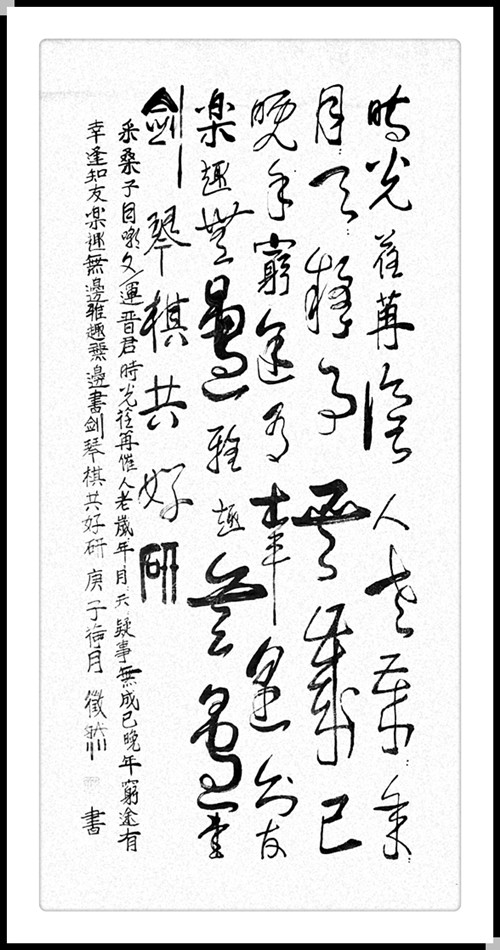 時光荏苒催人老歲年
月天疑事無成已
晚年窮途有幸逢知友
楽趣無邊雅趣無邊書
劍琴棋共好研
采桑子運晋君時光荏苒催人老歲年月天疑事無成已晚年窮途有
幸逢知友楽趣無邊雅趣無邊書劍琴棋共好研庚子月徵書